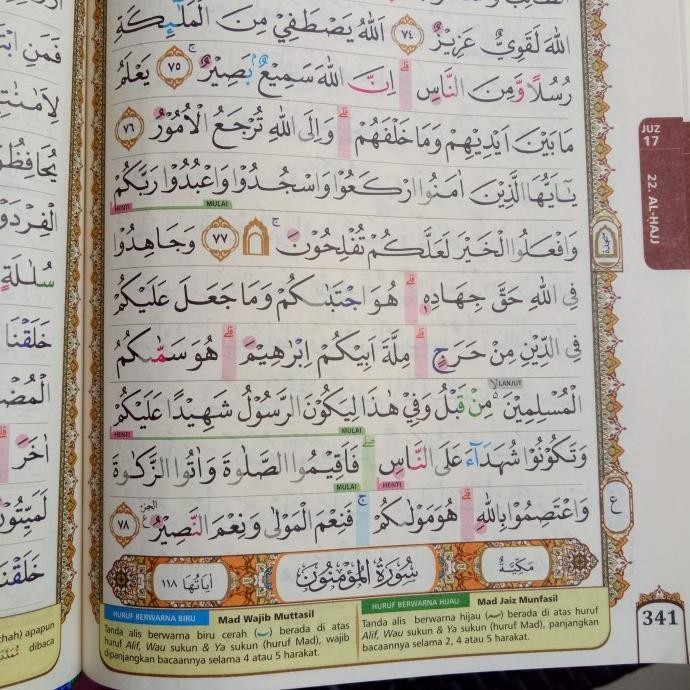 اللّٰهَ لَقَوِيٌّ عَزِيْزٌ ٧٤ اَللّٰهُ يَصْطَفِيْ مِنَ الْمَلٰۤىِٕكَةِ
رُسُلًا وَّمِنَ النَّاسِۗ اِنَّ اللّٰهَ سَمِيْعٌۢ بَصِيْرٌۚ ٧٥ يَعْلَمُ
مَا بَيْنَ اَيْدِيْهِمْ وَمَا خَلْفَهُمْۗ وَاِلَى اللّٰهِ تُرْجَعُ الْاُمُوْرُ ٧٦
يٰٓاَيُّهَا الَّذِيْنَ اٰمَنُوا ارْكَعُوْا وَاسْجُدُوْا وَاعْبُدُوْا رَبَّكُمْ
HENTI MULAI
وَافْعَلُوا الْخَيْرَ لَعَلَّكُمْ تُفْلِحُوْنَ ۚ۩ ٧٧ وَجَاهِدُوْا
فِى اللّٰهِ حَقَّ جِهَادِهٖۗ هُوَ اجْتَبٰىكُمْ وَمَا جَعَلَ عَلَيْكُمْ
فِى الدِّيْنِ مِنْ حَرَجٍۗ مِلَّةَ اَبِيْكُمْ اِبْرٰهِيْمَۗ هُوَ سَمّٰىكُمُ
LANJUT
الْمُسْلِمِيْنَ ەۙ مِنْ قَبْلُ وَفِيْ هٰذَا لِيَكُوْنَ الرَّسُوْلُ شَهِيْدًا عَلَيْكُمْ
HENTI MULAI
وَتَكُوْنُوْا شُهَدَاۤءَ عَلَى النَّاسِۖ فَاَقِيْمُوا الصَّلٰوةَ وَاٰتُوا الزَّكٰوةَ
MULAI HENTI
وَاعْتَصِمُوْا بِاللّٰهِۗ هُوَ مَوْلٰىكُمْۚ فَنِعْمَ الْمَوْلٰى وَنِعْمَ النَّصِيْرُ ٧٨
مَكِّيَّةٌ
سُوْرَةُ الْمُؤْمِنُوْنَ
اٰيَاتُهَا ١١٨
HURUF BERWARNA BIRU Mad Wajib Muttasil
Tanda alis berwarna biru cerah (ـٓ) berada di atas huruf
Alif, Wau sukun & Ya sukun (huruf Mad), wajib
dipanjangkan bacaannya selama 4 atau 5 harakat.
HURUF BERWARNA HIJAU Mad Jaiz Munfasil
Tanda alis berwarna hijau (ـٓ) berada di atas huruf
Alif, Wau sukun & Ya sukun (huruf Mad), panjangkan
bacaannya selama 2, 4 atau 5 harakat.
341
JUZ
17
22. AL-HAJJ
سجدة
ع
فَمَنِ
خَلَقْنَا
apapun
dibaca